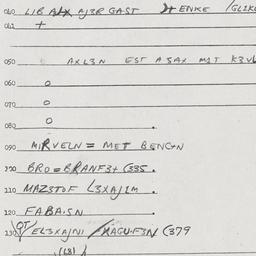 040 LIB AJ3R GAST ENKE /GLIK
041 +
050 AXL3N EST A SAX M1T K3VL
060 o
070 o
080 o .
090 MIRVELN = MET BENGN
100 BRO = BRANF3+ (335 .
110 MAZSTOF L3XAJ1M .
120 FABAISN .
130 (OT) EL3XAJNI /XAGUF3N (379
(L8)